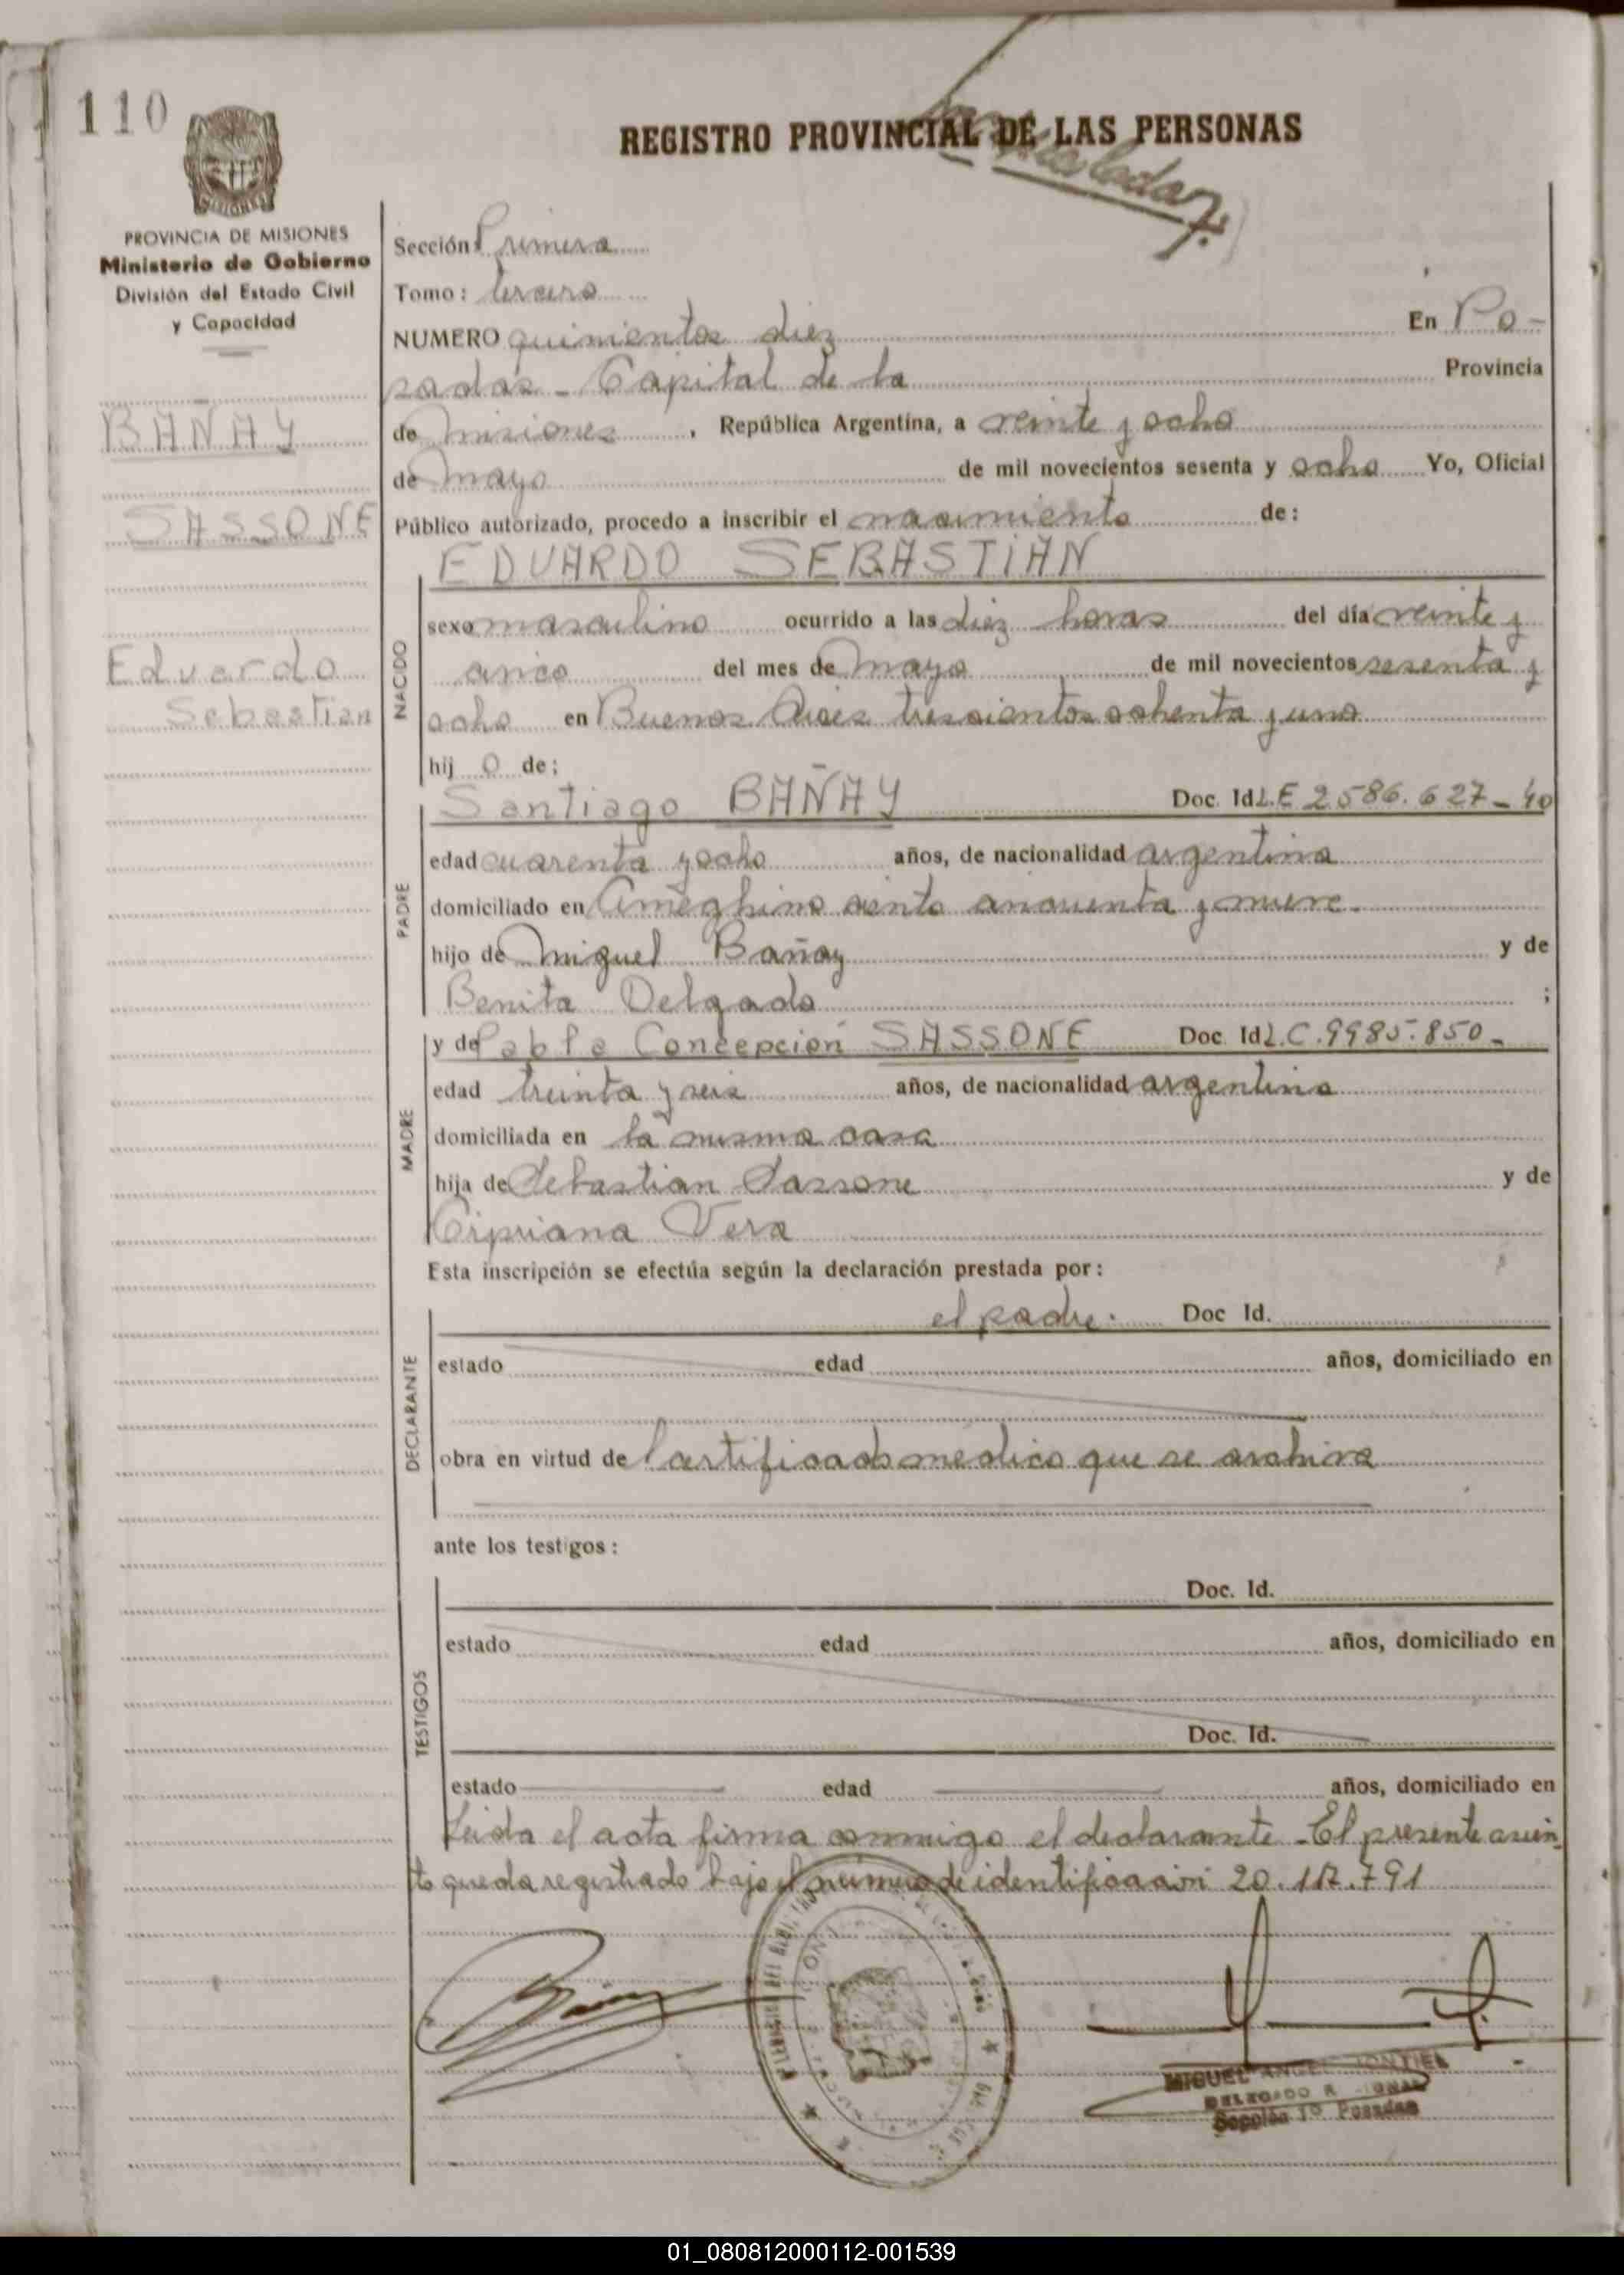 110
REGISTRO PROVINCIAL DE LAS PERSONAS
PROVINCIA DE MISIONES
Ministerio de Gobierno
División del Estado Civil
y Capacidad
BAÑAY
SASSONE
Eduardo
Sebastian
Sección Primera
Tomo: tercero
NUMERO quinientos diez En Po-
sadas - Capital de la Provincia
de Misiones, República Argentina, a veinte y ocho
de mayo de mil novecientos sesenta y ocho Yo, Oficial
Público autorizado, procedo a inscribir el nacimiento de:
EDUARDO SEBASTIAN
NACIDO
sexo masculino ocurrido a las diez horas del día veinte y
cinco del mes de mayo de mil novecientos sesenta y
ocho en Buenos Aires trescientos ochenta y uno
hij o de;
PADRE
Santiago BAÑAY Doc. Id L.E 2.586.627-40
edad cuarenta y ocho años, de nacionalidad argentina
domiciliado en Ameghino ciento cincuenta y nueve.
hijo de Miguel Bañay y de
Benita Delgado ;
MADRE
y de Pabla Concepción SASSONE Doc. Id L.C.9985.850-
edad treinta y seis años, de nacionalidad argentina
domiciliada en la misma casa
hija de Sebastian Sassone y de
Cipriana Vera
Esta inscripción se efectúa según la declaración prestada por:
DECLARANTE
el padre. Doc Id.
estado edad años, domiciliado en
obra en virtud de Certificado medico que se archiva
ante los testigos:
TESTIGOS
Doc. Id.
estado edad años, domiciliado en
Doc. Id.
estado edad años, domiciliado en
Leida el acta firma conmigo el declarante - El presente asien
to queda registrado bajo el número de identificación 20.117.791
MIGUEL ANGEL MONTIEL
DELEGADO R
Sección 1º Posadas
01_080812000112-001539